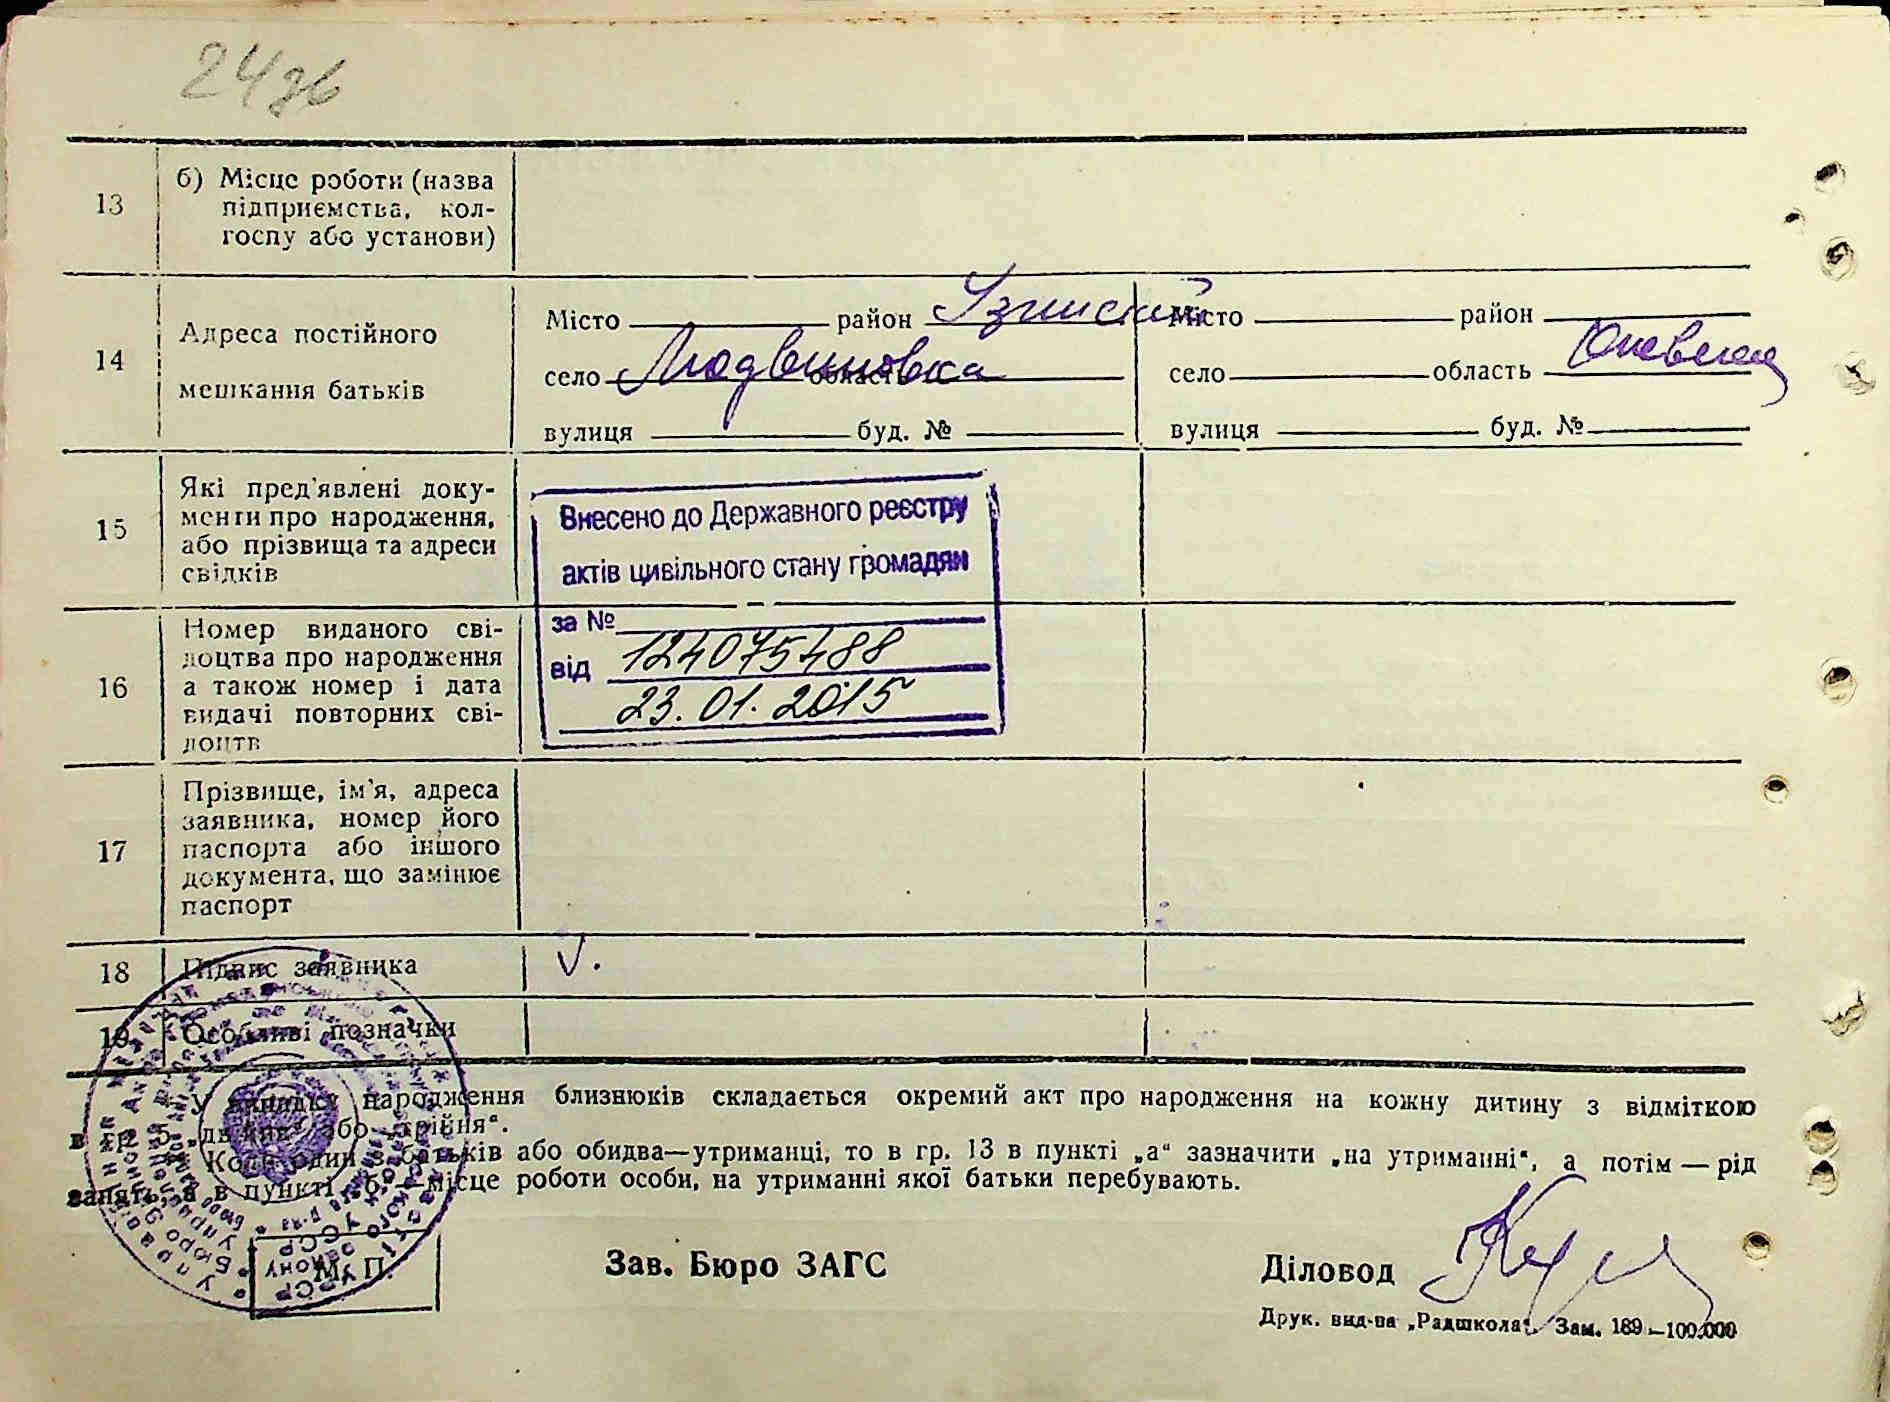 24зв
13
б) Місце роботи (назва
підприємства, кол-
госпу або установи)
14
Адреса постійного
мешкання батьків
Місто район Узинский
село Людвиновка область
вулиця буд. №
Місто район
село область Киевская
вулиця буд. №
15
Які пред'явлені доку-
менти про народження,
або прізвища та адреси
свідків
Внесено до Державного реєстру
актів цивільного стану громадян
за №
від 124075488
23.01.2015
16
Номер виданого сві-
доцтва про народження
а також номер і дата
видачі повторних сві-
доцтв
17
Прізвище, ім'я, адреса
заявника, номер його
паспорта або іншого
документа, що замінює
паспорт
18
Підпис заявника
V.
19
Особливі позначки
У випадку народження близнюків складається окремий акт про народження на кожну дитину з відміткою
в гр. 5 „двійня" або „трійня".
Коли один з батьків або обидва—утриманці, то в гр. 13 в пункті „а" зазначити „на утриманні", а потім — рід
занять, а в пункті „б"—місце роботи особи, на утриманні якої батьки перебувають.
М. П.
Зав. Бюро ЗАГС
Діловод
Друк. вид-ва „Радшкола". Зам. 189—100.000